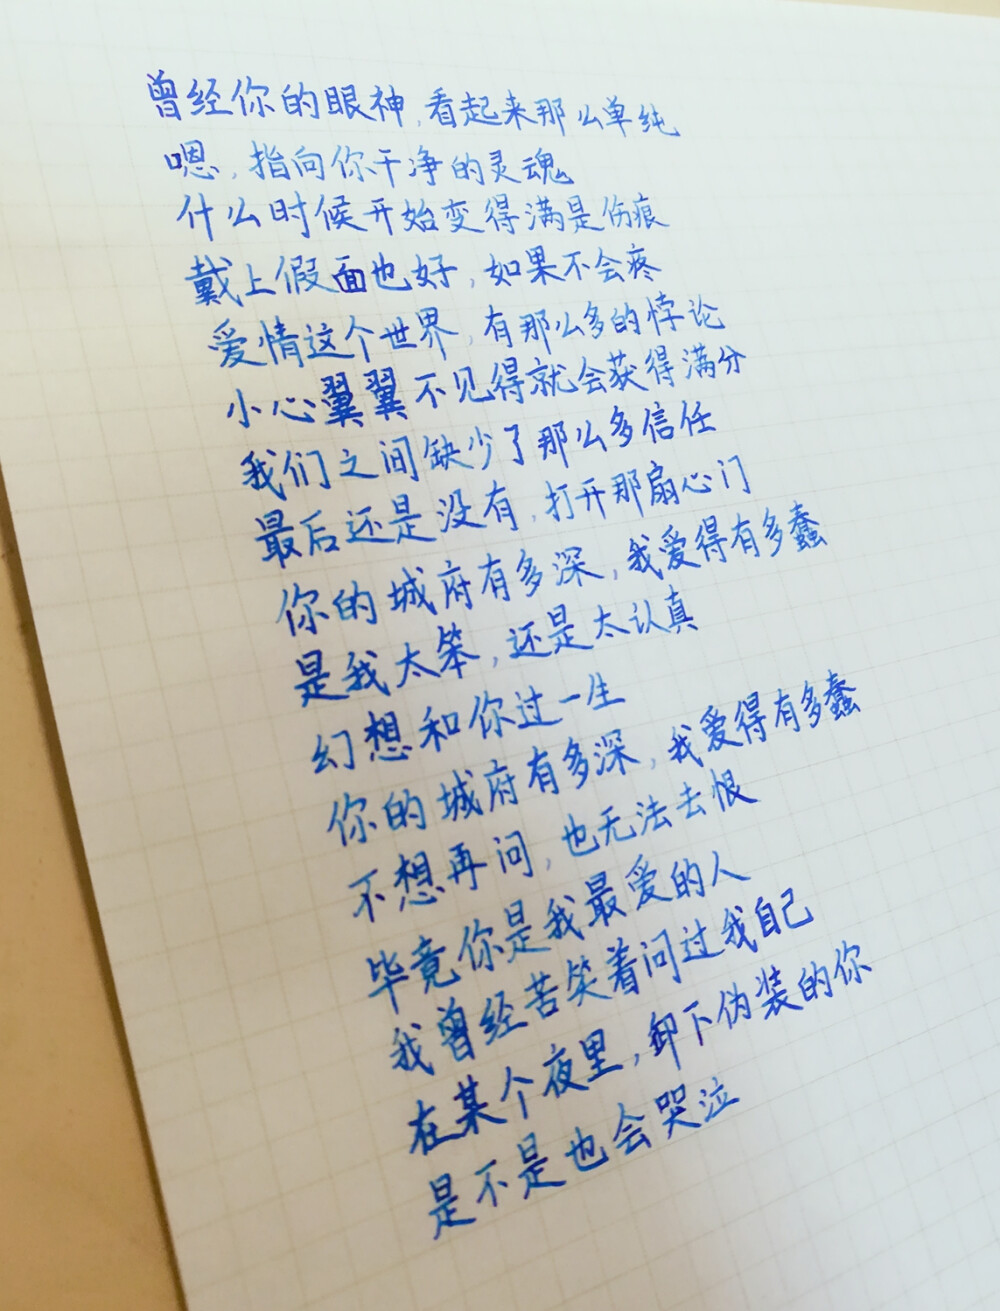 曾经你的眼神,看起来那么单纯
嗯,指向你干净的灵魂
什么时候开始变得满是伤痕
戴上假面也好,如果不会疼
爱情这个世界,有那么多的悖论
小心翼翼不见得就会获得满分
我们之间缺少了那么多信任
最后还是没有,打开那扇心门
你的城府有多深,我爱得有多蠢
是我太笨,还是太认真
幻想和你过一生
你的城府有多深,我爱得有多蠢
不想再问,也无法去恨
毕竟你是我最爱的人
我曾经苦笑着问过我自己
在某个夜里,卸下伪装的你
是不是也会哭泣